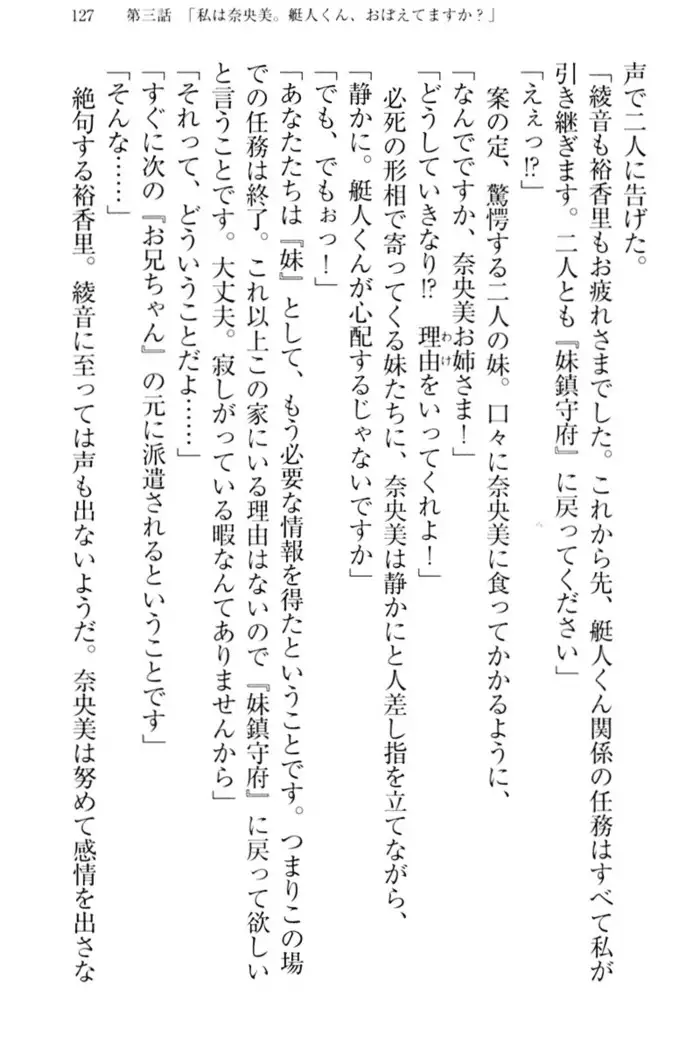 127　第三話　「私は奈央美。艇人くん、おぼえてますか？」
声で二人に告げた。
「綾音も裕香里もお疲れさまでした。これから先、艇人くん関係の任務はすべて私が
引き継ぎます。二人とも『妹鎮守府』に戻ってください」
「えぇっ!?」
案の定、驚愕する二人の妹。口々に奈央美に食ってかかるように、
「なんでですか、奈央美お姉さま！」
「どうしていきなり!?　理由をいってくれよ！」
わけ
必死の形相で寄ってくる妹たちに、奈央美は静かにと人差し指を立てながら、
「静かに。艇人くんが心配するじゃないですか」
「でも、でもぉっ！」
「あなたたちは『妹』として、もう必要な情報を得たということです。つまりこの場
での任務は終了。これ以上この家にいる理由はないので『妹鎮守府』に戻って欲しい
と言うことです。大丈夫。寂しがっている暇なんてありませんから」
「それって、どういうことだよ……」
「すぐに次の『お兄ちゃん』の元に派遣されるということです」
「そんな……」
絶句する裕香里。綾音に至っては声も出ないようだ。奈央美は努めて感情を出さな